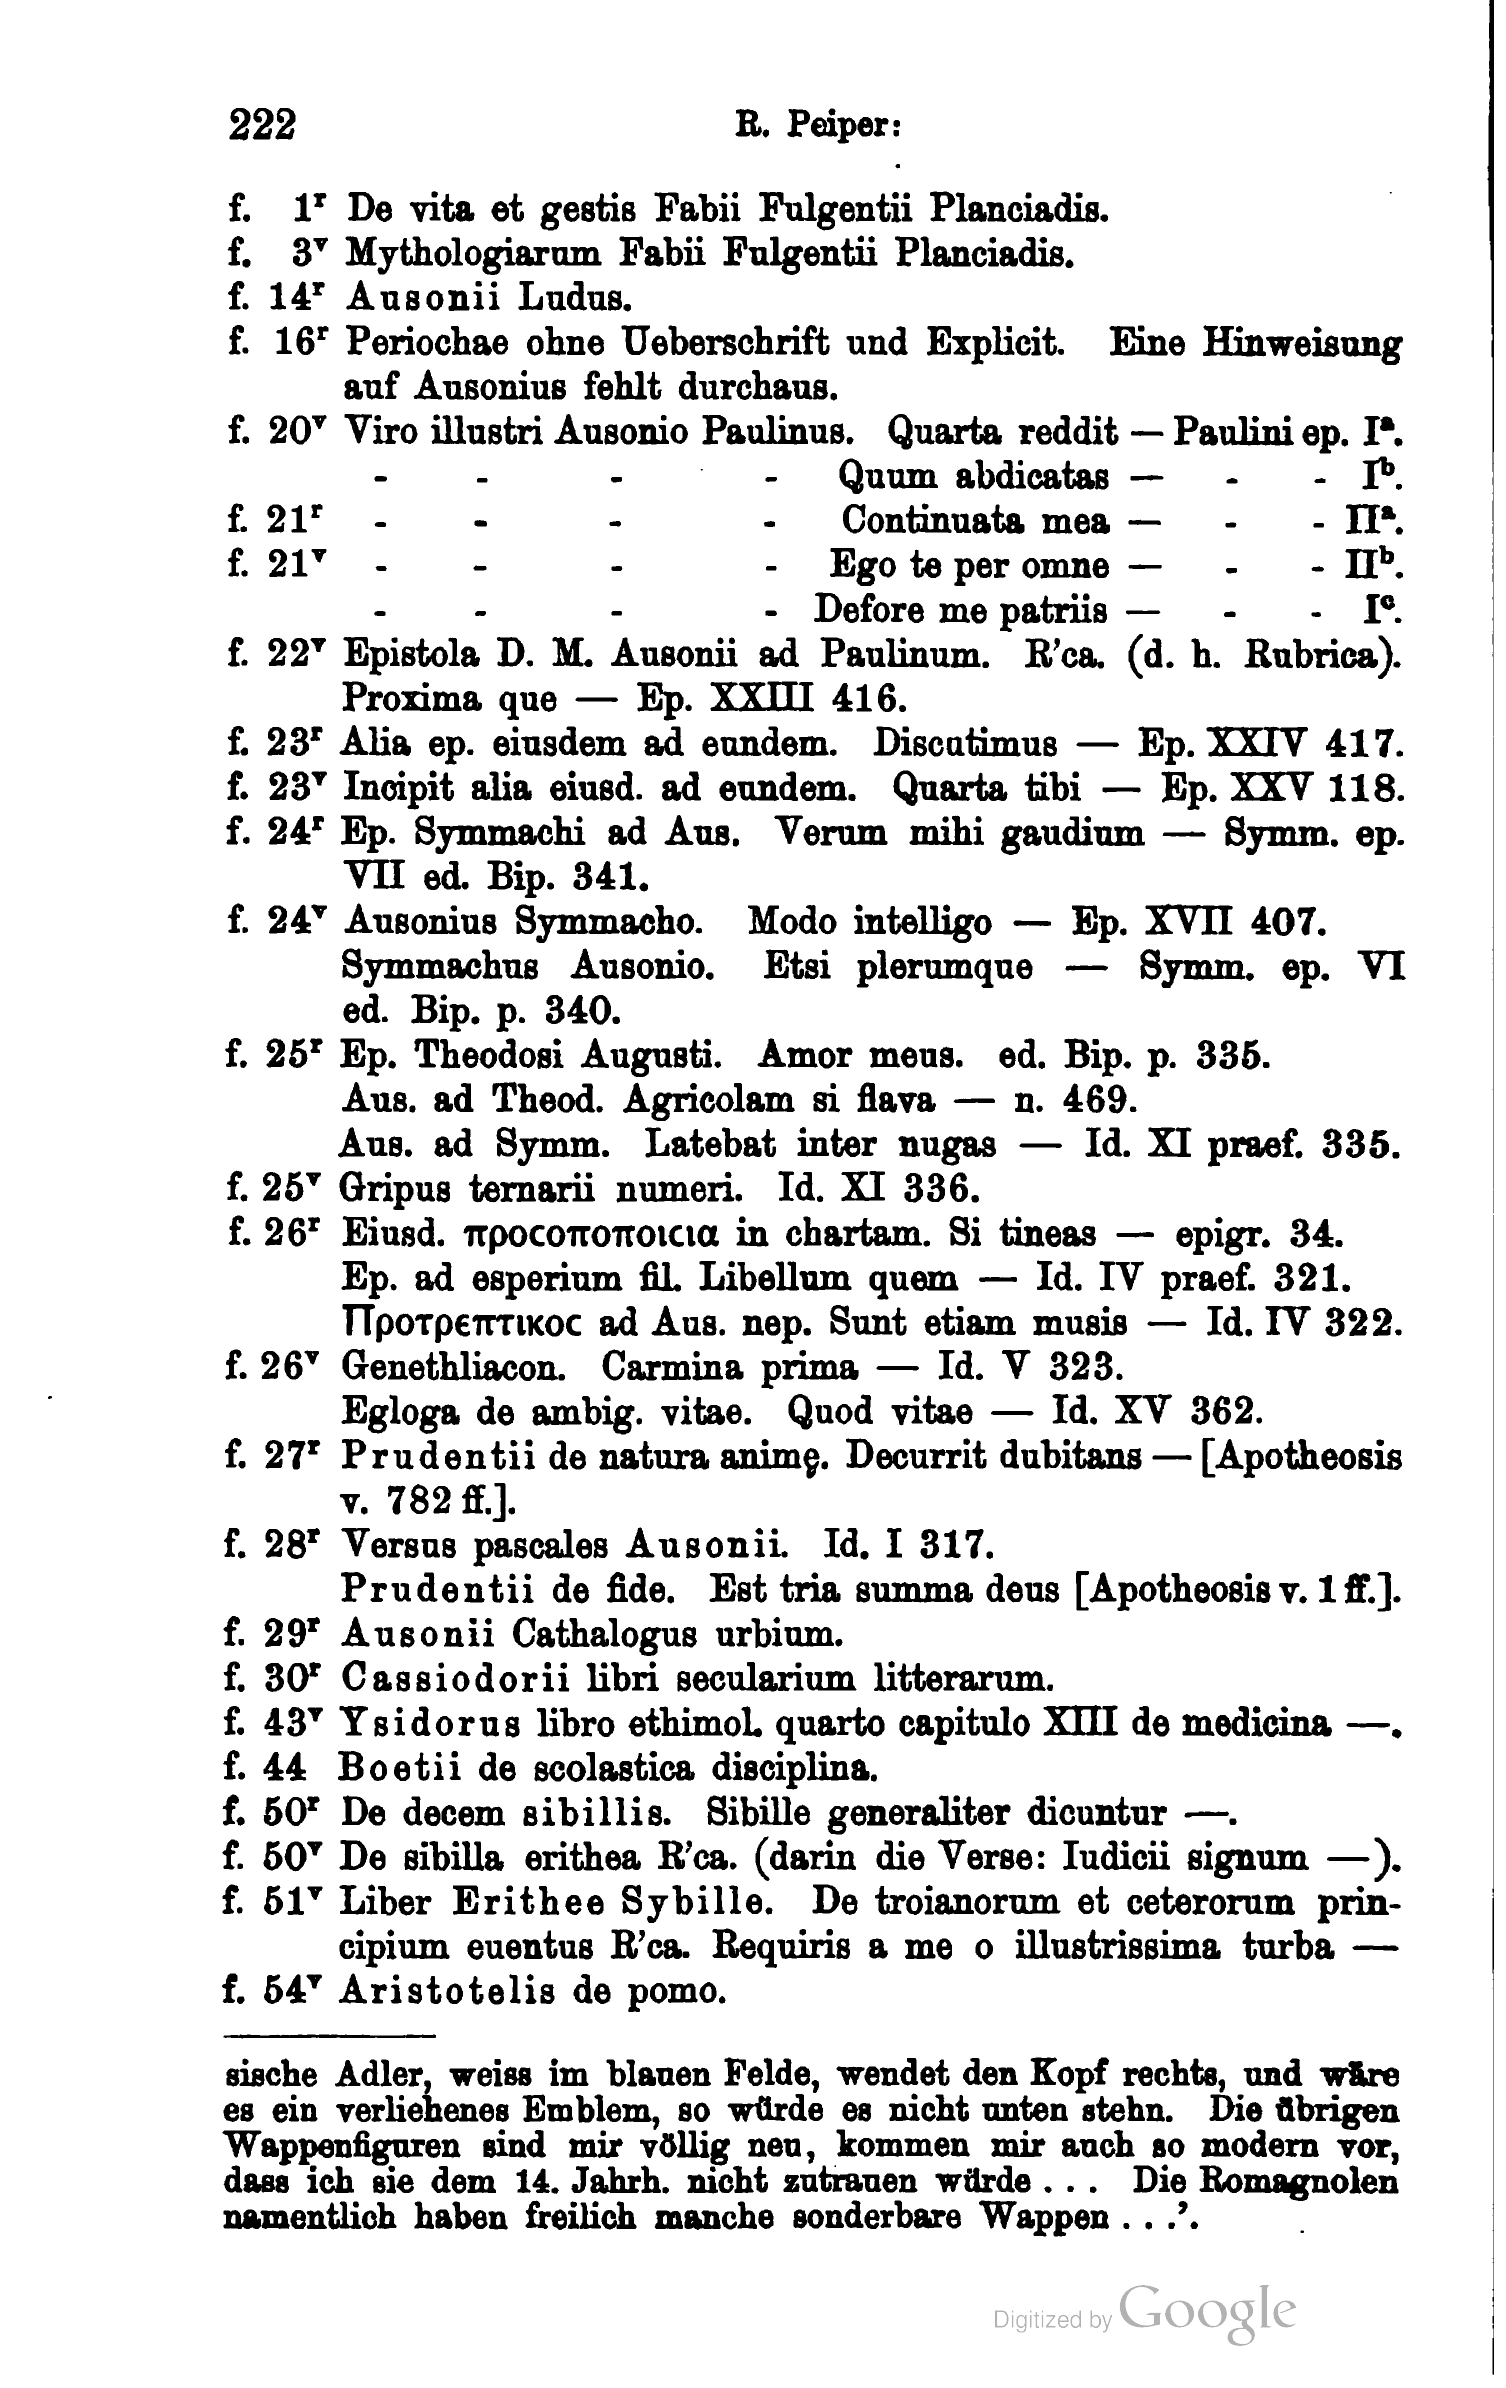 222 R. Peiper:
f. 1ʳ De vita et gestis Fabii Fulgentii Planciadis.
f. 3ᵛ Mythologiarum Fabii Fulgentii Planciadis.
f. 14ʳ Ausonii Ludus.
f. 16ʳ Periochae ohne Ueberschrift und Explicit. Eine Hinweisung
auf Ausonius fehlt durchaus.
f. 20ᵛ Viro illustri Ausonio Paulinus. Quarta reddit — Paulini ep. Iᵃ.
- - - - Quum abdicatas — - - Iᵇ.
f. 21ʳ - - - - Continuata mea — - - IIᵃ.
f. 21ᵛ - - - - Ego te per omne — - - IIᵇ.
- - - - Defore me patriis — - - Iᶜ.
f. 22ᵛ Epistola D. M. Ausonii ad Paulinum. R’ca. (d. h. Rubrica).
Proxima que — Ep. XXIII 416.
f. 23ʳ Alia ep. eiusdem ad eundem. Discutimus — Ep. XXIV 417.
f. 23ᵛ Incipit alia eiusd. ad eundem. Quarta tibi — Ep. XXV 118.
f. 24ʳ Ep. Symmachi ad Aus. Verum mihi gaudium — Symm. ep.
VII ed. Bip. 341.
f. 24ᵛ Ausonius Symmacho. Modo intelligo — Ep. XVII 407.
Symmachus Ausonio. Etsi plerumque — Symm. ep. VI
ed. Bip. p. 340.
f. 25ʳ Ep. Theodosi Augusti. Amor meus. ed. Bip. p. 335.
Aus. ad Theod. Agricolam si flava — n. 469.
Aus. ad Symm. Latebat inter nugas — Id. XI praef. 335.
f. 25ᵛ Gripus ternarii numeri. Id. XI 336.
f. 26ʳ Eiusd. προcοποποιcια in chartam. Si tineas — epigr. 34.
Ep. ad esperium fil. Libellum quem — Id. IV praef. 321.
Προτρεπτικοc ad Aus. nep. Sunt etiam musis — Id. IV 322.
f. 26ᵛ Genethliacon. Carmina prima — Id. V 323.
Egloga de ambig. vitae. Quod vitae — Id. XV 362.
f. 27ʳ Prudentii de natura animę. Decurrit dubitans — [Apotheosis
v. 782 ff.].
f. 28ʳ Versus pascales Ausonii. Id. I 317.
Prudentii de fide. Est tria summa deus [Apotheosis v. 1 ff.].
f. 29ʳ Ausonii Cathalogus urbium.
f. 30ʳ Cassiodorii libri secularium litterarum.
f. 43ᵛ Ysidorus libro ethimol. quarto capitulo XIII de medicina —.
f. 44 Boetii de scolastica disciplina.
f. 50ʳ De decem sibillis. Sibille generaliter dicuntur —.
f. 50ᵛ De sibilla erithea R’ca. (darin die Verse: Iudicii signum —).
f. 51ᵛ Liber Erithee Sybille. De troianorum et ceterorum prin-
cipium euentus R’ca. Requiris a me o illustrissima turba —
f. 54ᵛ Aristotelis de pomo.
sische Adler, weiss im blauen Felde, wendet den Kopf rechts, und wäre
es ein verliehenes Emblem, so würde es nicht unten stehn. Die übrigen
Wappenfiguren sind mir völlig neu, kommen mir auch so modern vor,
dass ich sie dem 14. Jahrh. nicht zutrauen würde . . . Die Romagnolen
namentlich haben freilich manche sonderbare Wappen . . .’.
Digitized by Google